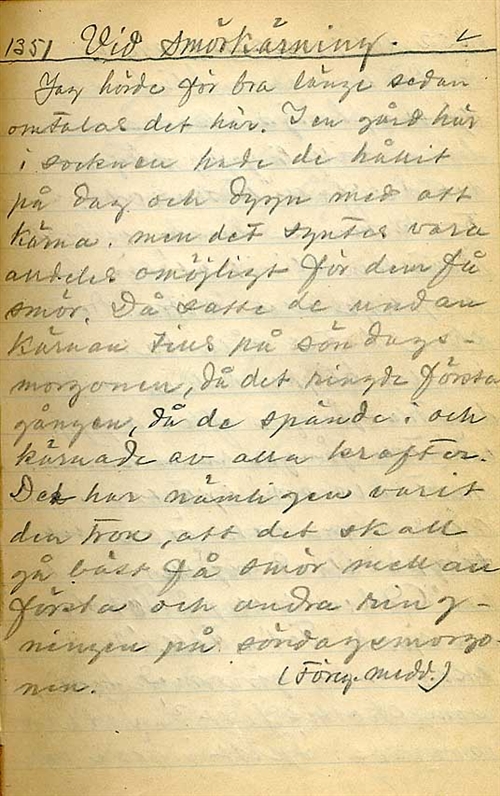 1351 Vid smörkärning.
Jag hörde för bra länge sedan
omtalas det här. I en gård här
i socknen hade de hållit
på dag och dygn med att
kärna, men det syntes vara
alldeles omöjligt för dem få
smör. Då satte de undan
kärnan tills på söndags-
morgonen, då det ringde första
gången, då de spände i och
kärnade av alla krafter.
Det har nämligen varit
den tron, att det skall
gå bäst få smör mellan
första och andra ring-
ningen på söndagsmorgo-
nen. (Föreg. medd.)